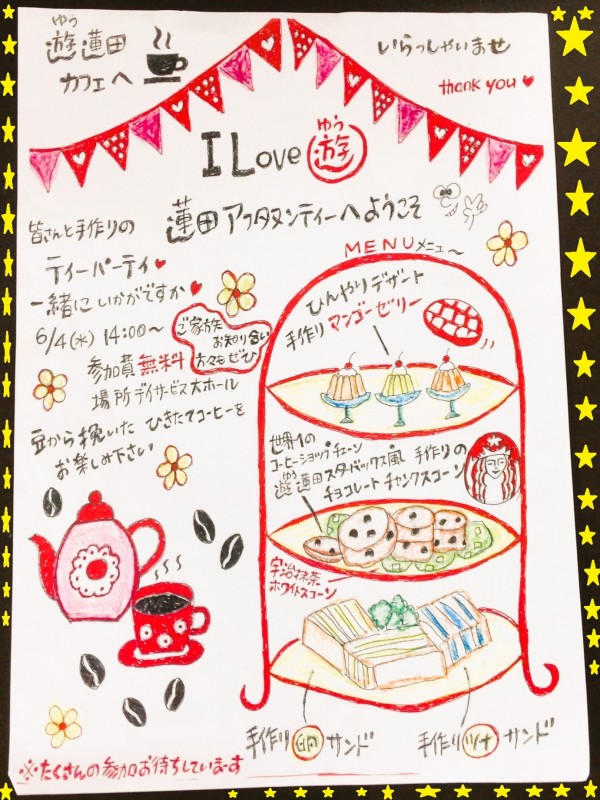 ゆう
遊蓮田
カフェへ
いらっしゃいませ
thank you
ゆう
I Love 遊
蓮田アフタヌンティーへようこそ
皆さんと手作りの
ティーパーティ
一緒にいかがですか
6/4(水) 14:00〜
ご家族
お知り合い
方々もぜひ
参加費無料
場所デイサービス大ホール
豆から挽いた ひきたてコーヒーを
お楽しみ下さい
MENU メニュ〜
ひんやりデザート
手作りマンゴーゼリー
世界1の
コーヒーショップチェーン
ゆう
遊蓮田スターバックス風 手作りの
チョコレートチャンクスコーン
宇治抹茶
ホワイトスコーン
手作り卵サンド
手作りツナサンド
※たくさんの参加お待ちしています